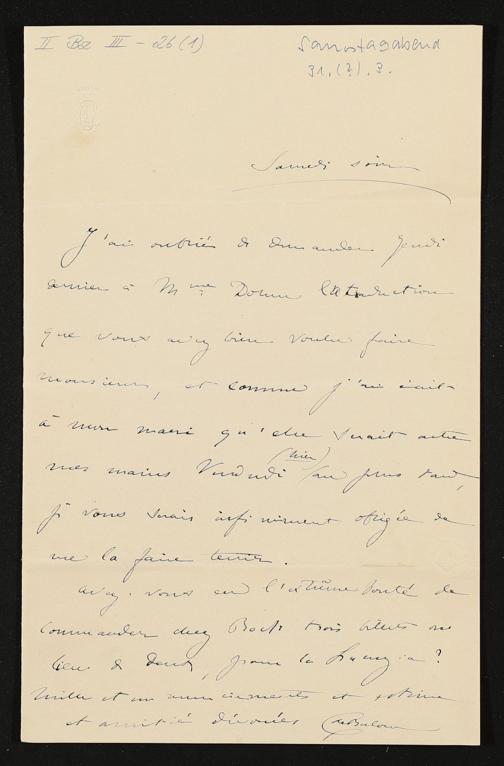 II Bz III - 026 (1)
Sonnstagabend
31. (?). ?.
Samedi soir
J'ai oublié de demander Jeudi
dernier à Mme Dohm la traduction
que vous avez bien voulu faire
monsieur, et comme j'ai écrit
à mon mari qu'elle serait entre
mes mains Vendredi (hier) au plus tard,
je vous serais infiniment obligée de
me la faire tenir.
Avez-vous eu l'extrême bonté de
commander chez Bock trois billets au
lieu de deux, pour la
Mille et un remerciements et estime
et amitié dévouées CdeBulow